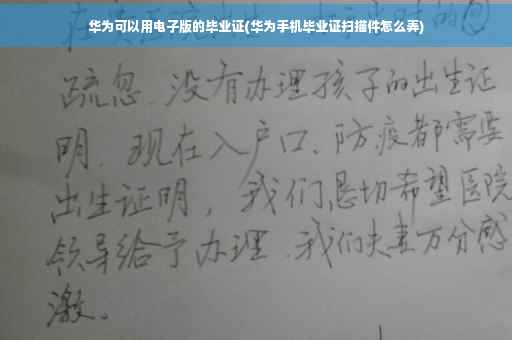 华为可以用电子版的毕业证(华为手机毕业证扫描件怎么弄)
疏忽、没有办理孩子的出生证
明、现在入户口、防疫都需要
出生证明，我们恳切希望医院
领导给予办理、我们夫妻万分感
激。